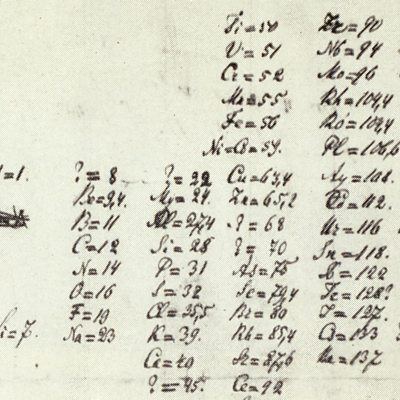 Ti=50 Zr=90
V=51 Nb=94
Cr=52 Mo=96
Mn=55 Rh=104,4
Fe=56 Ro=104,4
Ni=Co=59. Pl=106,6
=1. ?=8 ?=22 Cu=63,4 Ag=108.
Be=9,4 Mg=24. Zn=65,2 Cd=112.
B=11 Al=27,4 ?=68 Ur=116
C=12 Si=28 ?=70 Sn=118.
N=14 P=31 As=75 Sb=122
O=16 S=32 Se=79,4 Te=128?
F=19 Cl=35,5 Br=80 J=127.
Li=7. Na=23 K=39. Rb=85,4 Cs=133
Ca=40 Sr=87,6 Ba=137
?=45. Ce=92